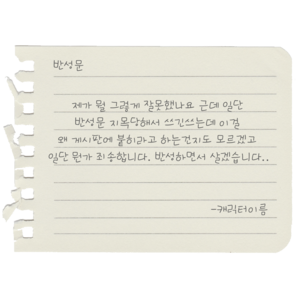 반성문
제가 뭘 그렇게 잘못했나요 근데 일단
반성문 지목당해서 쓰긴쓰는데 이걸
왜 게시판에 붙히라고 하는건지도 모르겠고
일단 뭔가 죄송합니다. 반성하면서 살겠습니다..
-캐릭터이름